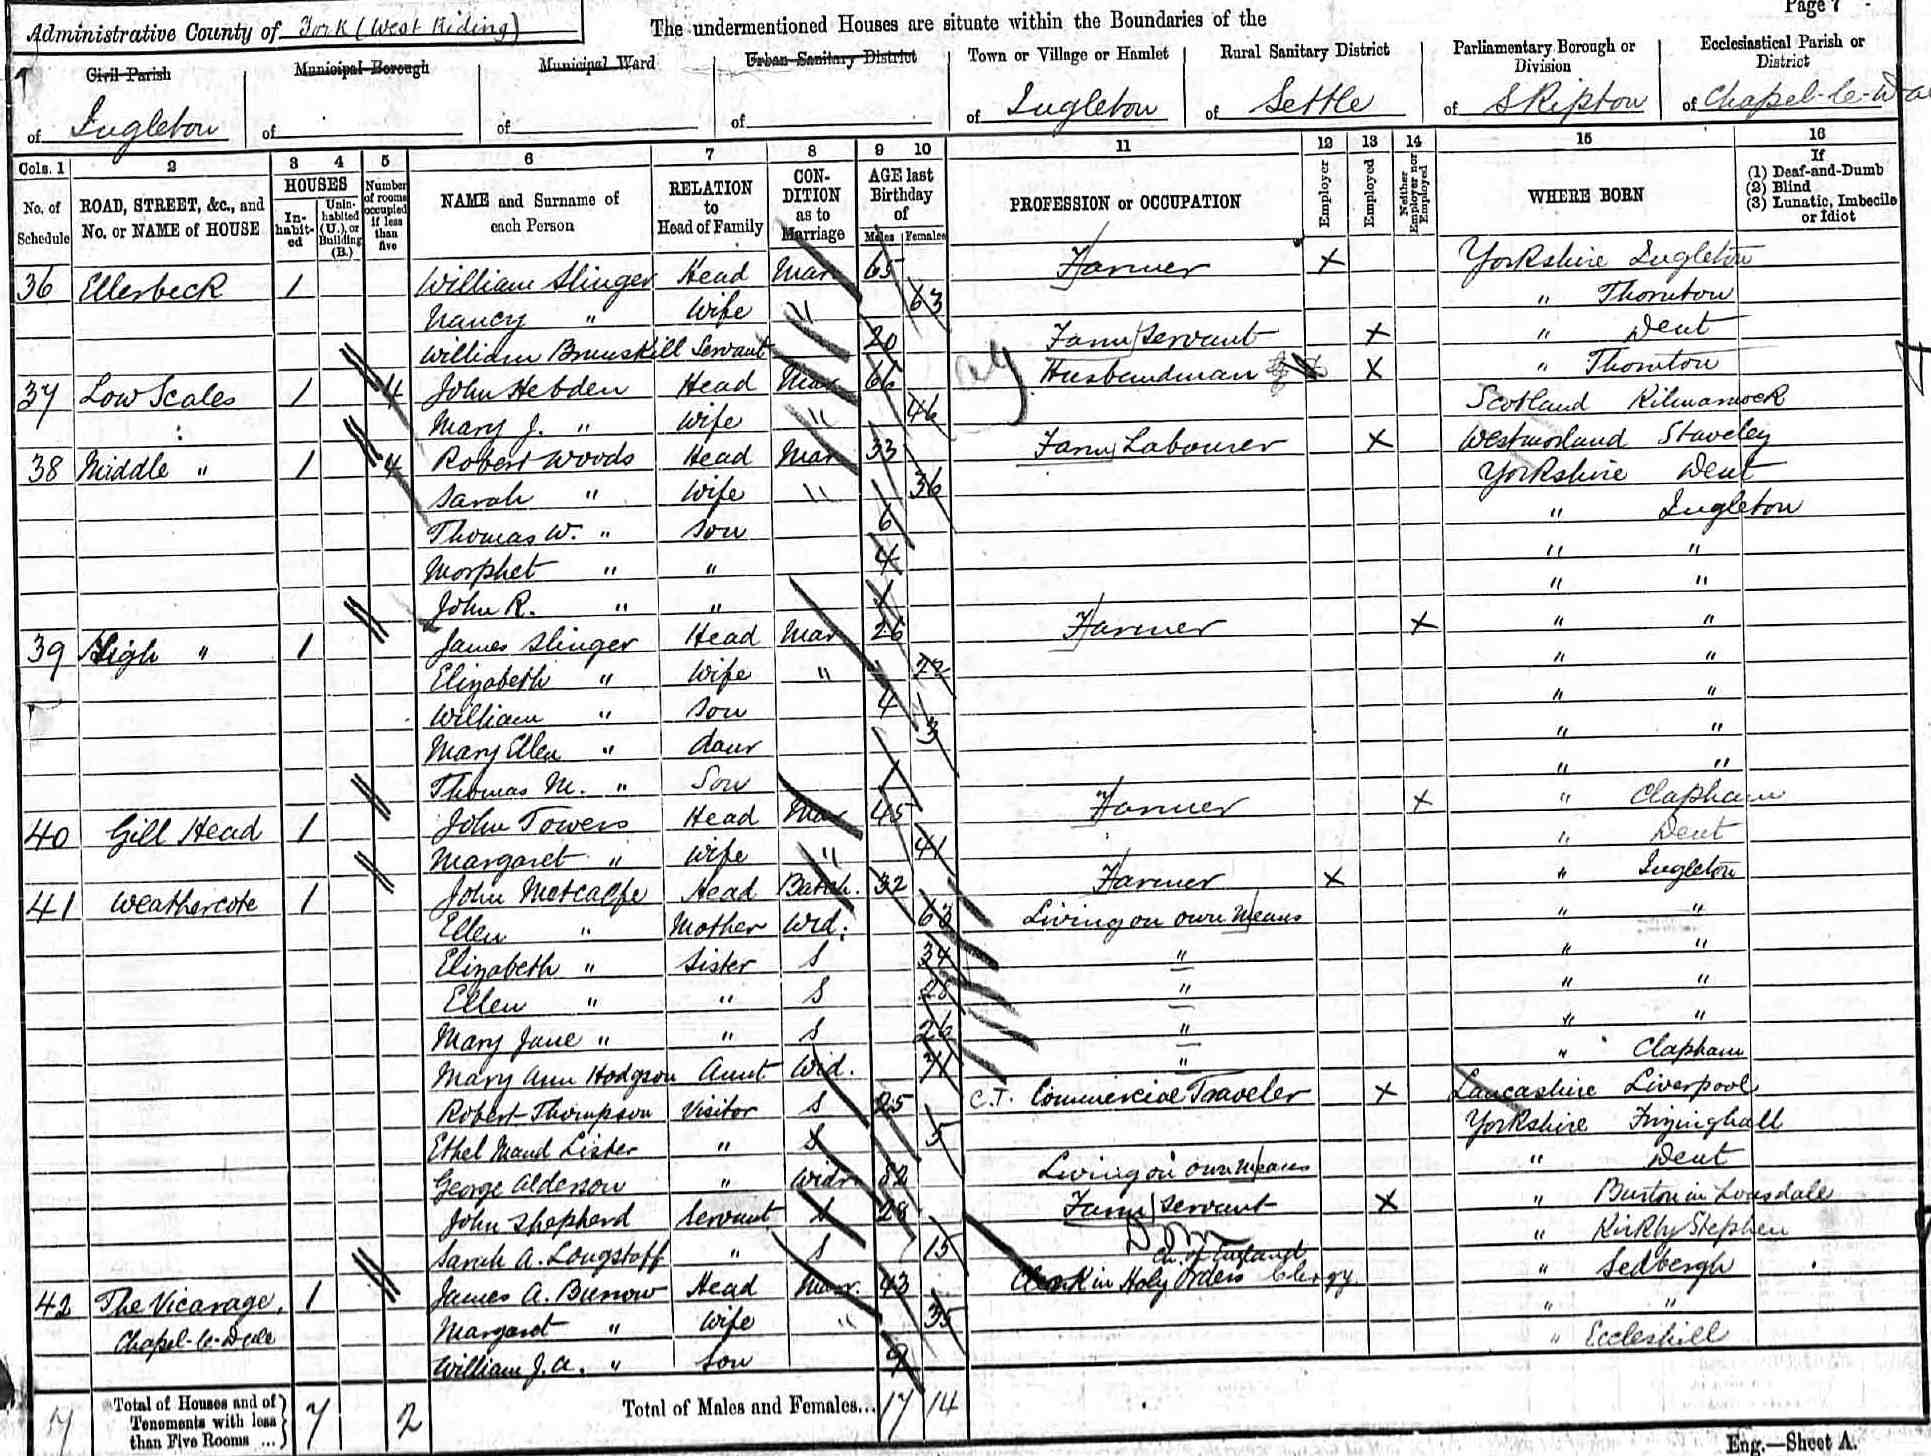 Page 7
Administrative County of York (West Riding)
The undermentioned Houses are situate within the Boundaries of the
Civil Parish
Municipal Borough
Municipal Ward
Urban Sanitary District
Town or Village or Hamlet
Rural Sanitary District
Parliamentary Borough or Division
Ecclesiastical Parish or District
of Ingleton
of
of
of
of Ingleton
of Settle
of Skipton
of Chapel-le-Dale
Cols. 1 2 3 4 5 6 7 8 9 10 11 12 13 14 15 16
No. of Schedule
ROAD, STREET, &c., and No. or NAME of HOUSE
HOUSES
In-habit-ed
Unin-habited (U.), or Building (B.)
Number of rooms occupied if less than five
NAME and Surname of each Person
RELATION to Head of Family
CON-DITION as to Marriage
AGE last Birthday of
Males Females
PROFESSION or OCCUPATION
Employer
Employed
Neither Employer nor Employed
WHERE BORN
If
(1) Deaf-and-Dumb
(2) Blind
(3) Lunatic, Imbecile or Idiot
36 Ellerbeck 1 William Slinger Head Mar 65 Farmer X Yorkshire Ingleton
Nancy " Wife " 63 " Thornton
William Brunskill Servant 20 Farm Servant X " Dent
37 Low Scales 1 4 John Hebden Head Mar 66 Husbandman X " Thornton
Mary J. " Wife " 46 Scotland Kilmarnock
38 Middle " 1 4 Robert Woods Head Mar 33 Farm Labourer X Westmorland Staveley
Sarah " Wife " 36 Yorkshire Dent
Thomas W. " Son 6 " Ingleton
Morphet " " 4 " "
John R. " " 1 " "
39 High " 1 James Slinger Head Mar 26 Farmer X " "
Elizabeth " Wife " 22 " "
William " Son 4 " "
Mary Ellen " Daur 3 " "
Thomas M. " Son 1 " "
40 Gill Head 1 John Towers Head Mar 45 Farmer X " Clapham
Margaret " Wife " 41 " Dent
41 Weathercote 1 John Metcalfe Head Batch. 32 Farmer X " Ingleton
Ellen " Mother Wid. 63 Living on own Means " "
Elizabeth " Sister S 34 " " "
Ellen " " S 28 " " "
Mary Jane " " S 26 " " "
Mary Ann Hodgson Aunt Wid. 71 " " Clapham
Robert Thompson Visitor S 25 C.T. Commercial Traveler X Lancashire Liverpool
Ethel Maud Lister " S 5 Yorkshire Frizinghall
George Alderson " Widr 82 Living on own Means " Dent
John Shepherd Servant S 28 Farm Servant X " Burton in Lonsdale
Sarah A. Longstaff " S 15 Dom " Kirkby Stephen
42 The Vicarage, 1 James A. Burrow Head Mar. 43 Clerk in Holy Orders Ch. of England Clergy " Sedbergh
Chapel-le-Dale Margaret " Wife " 35 " "
William J. A. " Son 9 " Eccleshill
7 Total of Houses and of Tenements with less than Five Rooms ... 7 2 Total of Males and Females... 17 14
Eng.—Sheet A.